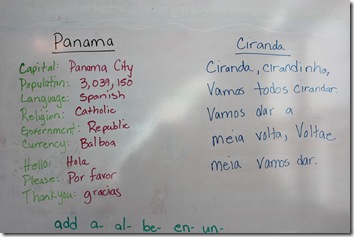 Panama
Capital: Panama City
Population: 3,039,150
Language: Spanish
Religion: Catholic
Government: Republic
Currency: Balboa
Hello: Hola
Please: Por favor
Thankyou: gracias
Ciranda
Ciranda, cirandinha,
Vamos todos cirandar.
Vamos dar a
meia volta, Voltae
meia vamos dar.
add a- al- be- en- un-